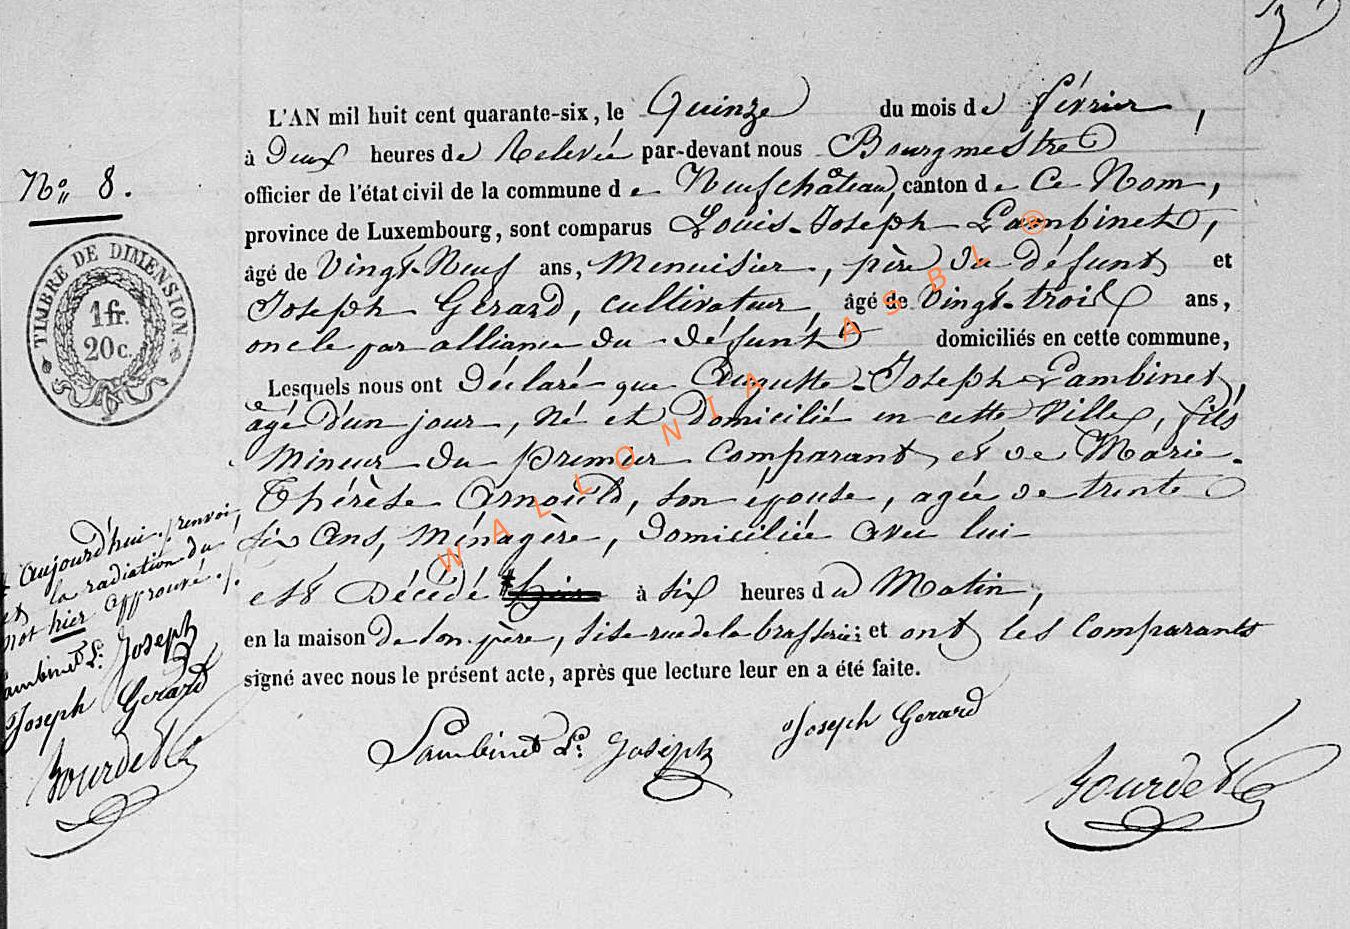 3
L'AN mil huit cent quarante-six, le Quinze du mois de février,
à Deux heures de Relevée par-devant nous Bourgmestre
N°. 8.
officier de l'état civil de la commune de Neufchâteau, canton de Ce Nom,
province de Luxembourg, sont comparus Louis-Joseph Lambinet,
âgé de Vingt-Neuf ans, Menuisier, père du défunt et
Joseph Gérard, cultivateur, âgé de Vingt-trois ans,
oncle par alliance du défunt domiciliés en cette commune,
Lesquels nous ont Déclaré que Auguste-Joseph Lambinet,
âgé d'un jour, Né et domicilié en cette Ville, fils
Mineur du premier Comparant et de Marie-
Thérèse Arnould, son épouse, agée de trente
six Ans, Ménagère, Domiciliée avec lui
est Décédé * hier à six heures du Matin,
en la maison De son père, sise rue de la brasserie; et ont les comparants
signé avec nous le présent acte, après que lecture leur en a été faite.
Lambinet L: Joseph
Joseph Gerard
Bourdet
TIMBRE DE DIMENSION.
1 fr.
20 c.
* aujourd'hui, renvoi
et la radiation du
mot hier approuvé ./.
Lambinet L: Joseph
Joseph Gerard
Bourdet
WALLONIA ASBL ®